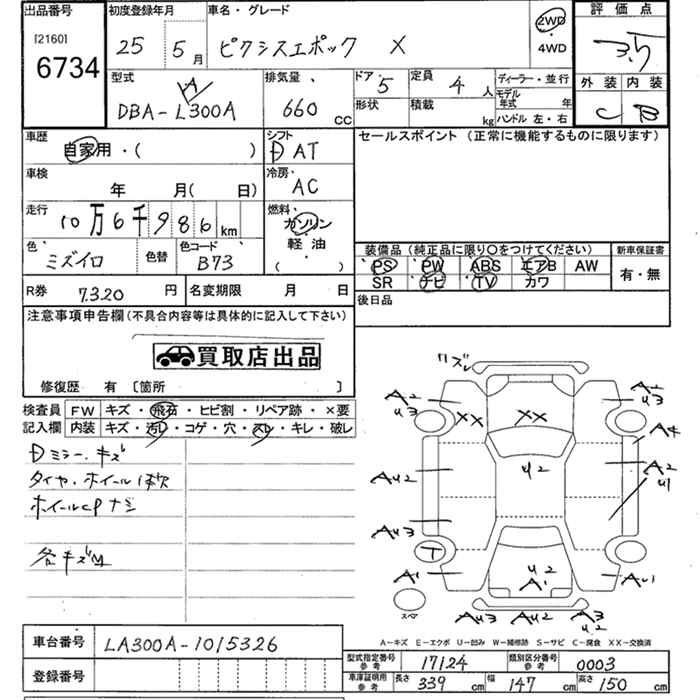 出品番号
[2160]
6734
初度登録年月
25 5月
車名・グレード
ピクシスエポック X
2WD
・
4WD
評価点
3.5
外装 内装
C B
型式
DBA-L300A
A
排気量
660 CC
ドア 5
定員 4 人
ディーラー・並行
形状
積載 kg
モデル年式 年
ハンドル 左・右
車歴
自家用・( )
シフト
D AT
セールスポイント (正常に機能するものに限ります)
車検
年 月( 日)
冷房
AC
走行
10万6千986km
燃料
ガソリン
軽油
( )
色
ミズイロ
色替
色コード
B73
装備品(純正品に限り○をつけてください)
PS PW ABS エアB AW
SR ナビ TV カワ
新車保証書
有・無
R券 7.3.20 円
名変期限 月 日
後日品
注意事項申告欄(不具合内容等は具体的に記入して下さい)
買取店出品
修復歴 有 〔箇所 〕
検査員
記入欄
FW キズ・飛石・ヒビ割・リペア跡・×要
内装 キズ・汚レ・コゲ・穴・スレ・キレ・破レ
Dミラー.キズ
タイヤ.ホイール1本欠
ホイールCPナシ
各キズM
リズレ
A2
U3
XX
XX
A2
U3
A4
U2
AU2
A2
U1
AU3
T
A1
U2
A1
AU1
スペア
AU3
AU2
A3
U2
A-キズ E-エクボ U-凹み W-補修跡 S-サビ C-腐食 XX-交換済
車台番号 LA300A-1015326
登録番号
型式指定番号
参考
17124
類別区分番号
参考
0003
車庫証明用
参考
長さ 339 cm
幅 147 cm
高さ 150 cm